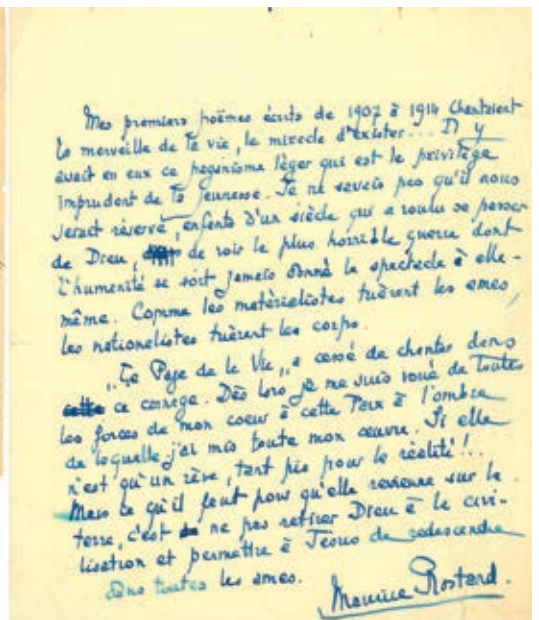 Mes premiers poèmes écrits de 1907 à 1914 chantaient
la merveille de la vie, le miracle d'exister... Il y
avait en eux ce paganisme léger qui est le privilège
imprudent de la jeunesse. Je ne savais pas qu'il nous
serait réservé, enfants d'un siècle qui a voulu se passer
de Dieu, de voir le plus horrible guerre dont
l'humanité se soit jamais donné le spectacle à elle-
même. Comme les matérialistes tuèrent les ames,
les nationalistes tuèrent les corps.
"Le Page de la Vie" a cessé de chanter dans
ce carnage. Dès lors je me suis voué de toutes
les forces de mon coeur à cette Paix à l'ombre
de laquelle j'ai mis toute mon œuvre. Si elle
n'est qu'un rêve, tant pis pour la réalité!..
Mais ce qu'il faut pour qu'elle revienne sur la
terre, c'est ne pas retirer Dieu à la civi-
lisation et permettre à Jésus de redescendre
dans toutes les ames.
Maurice Rostand.